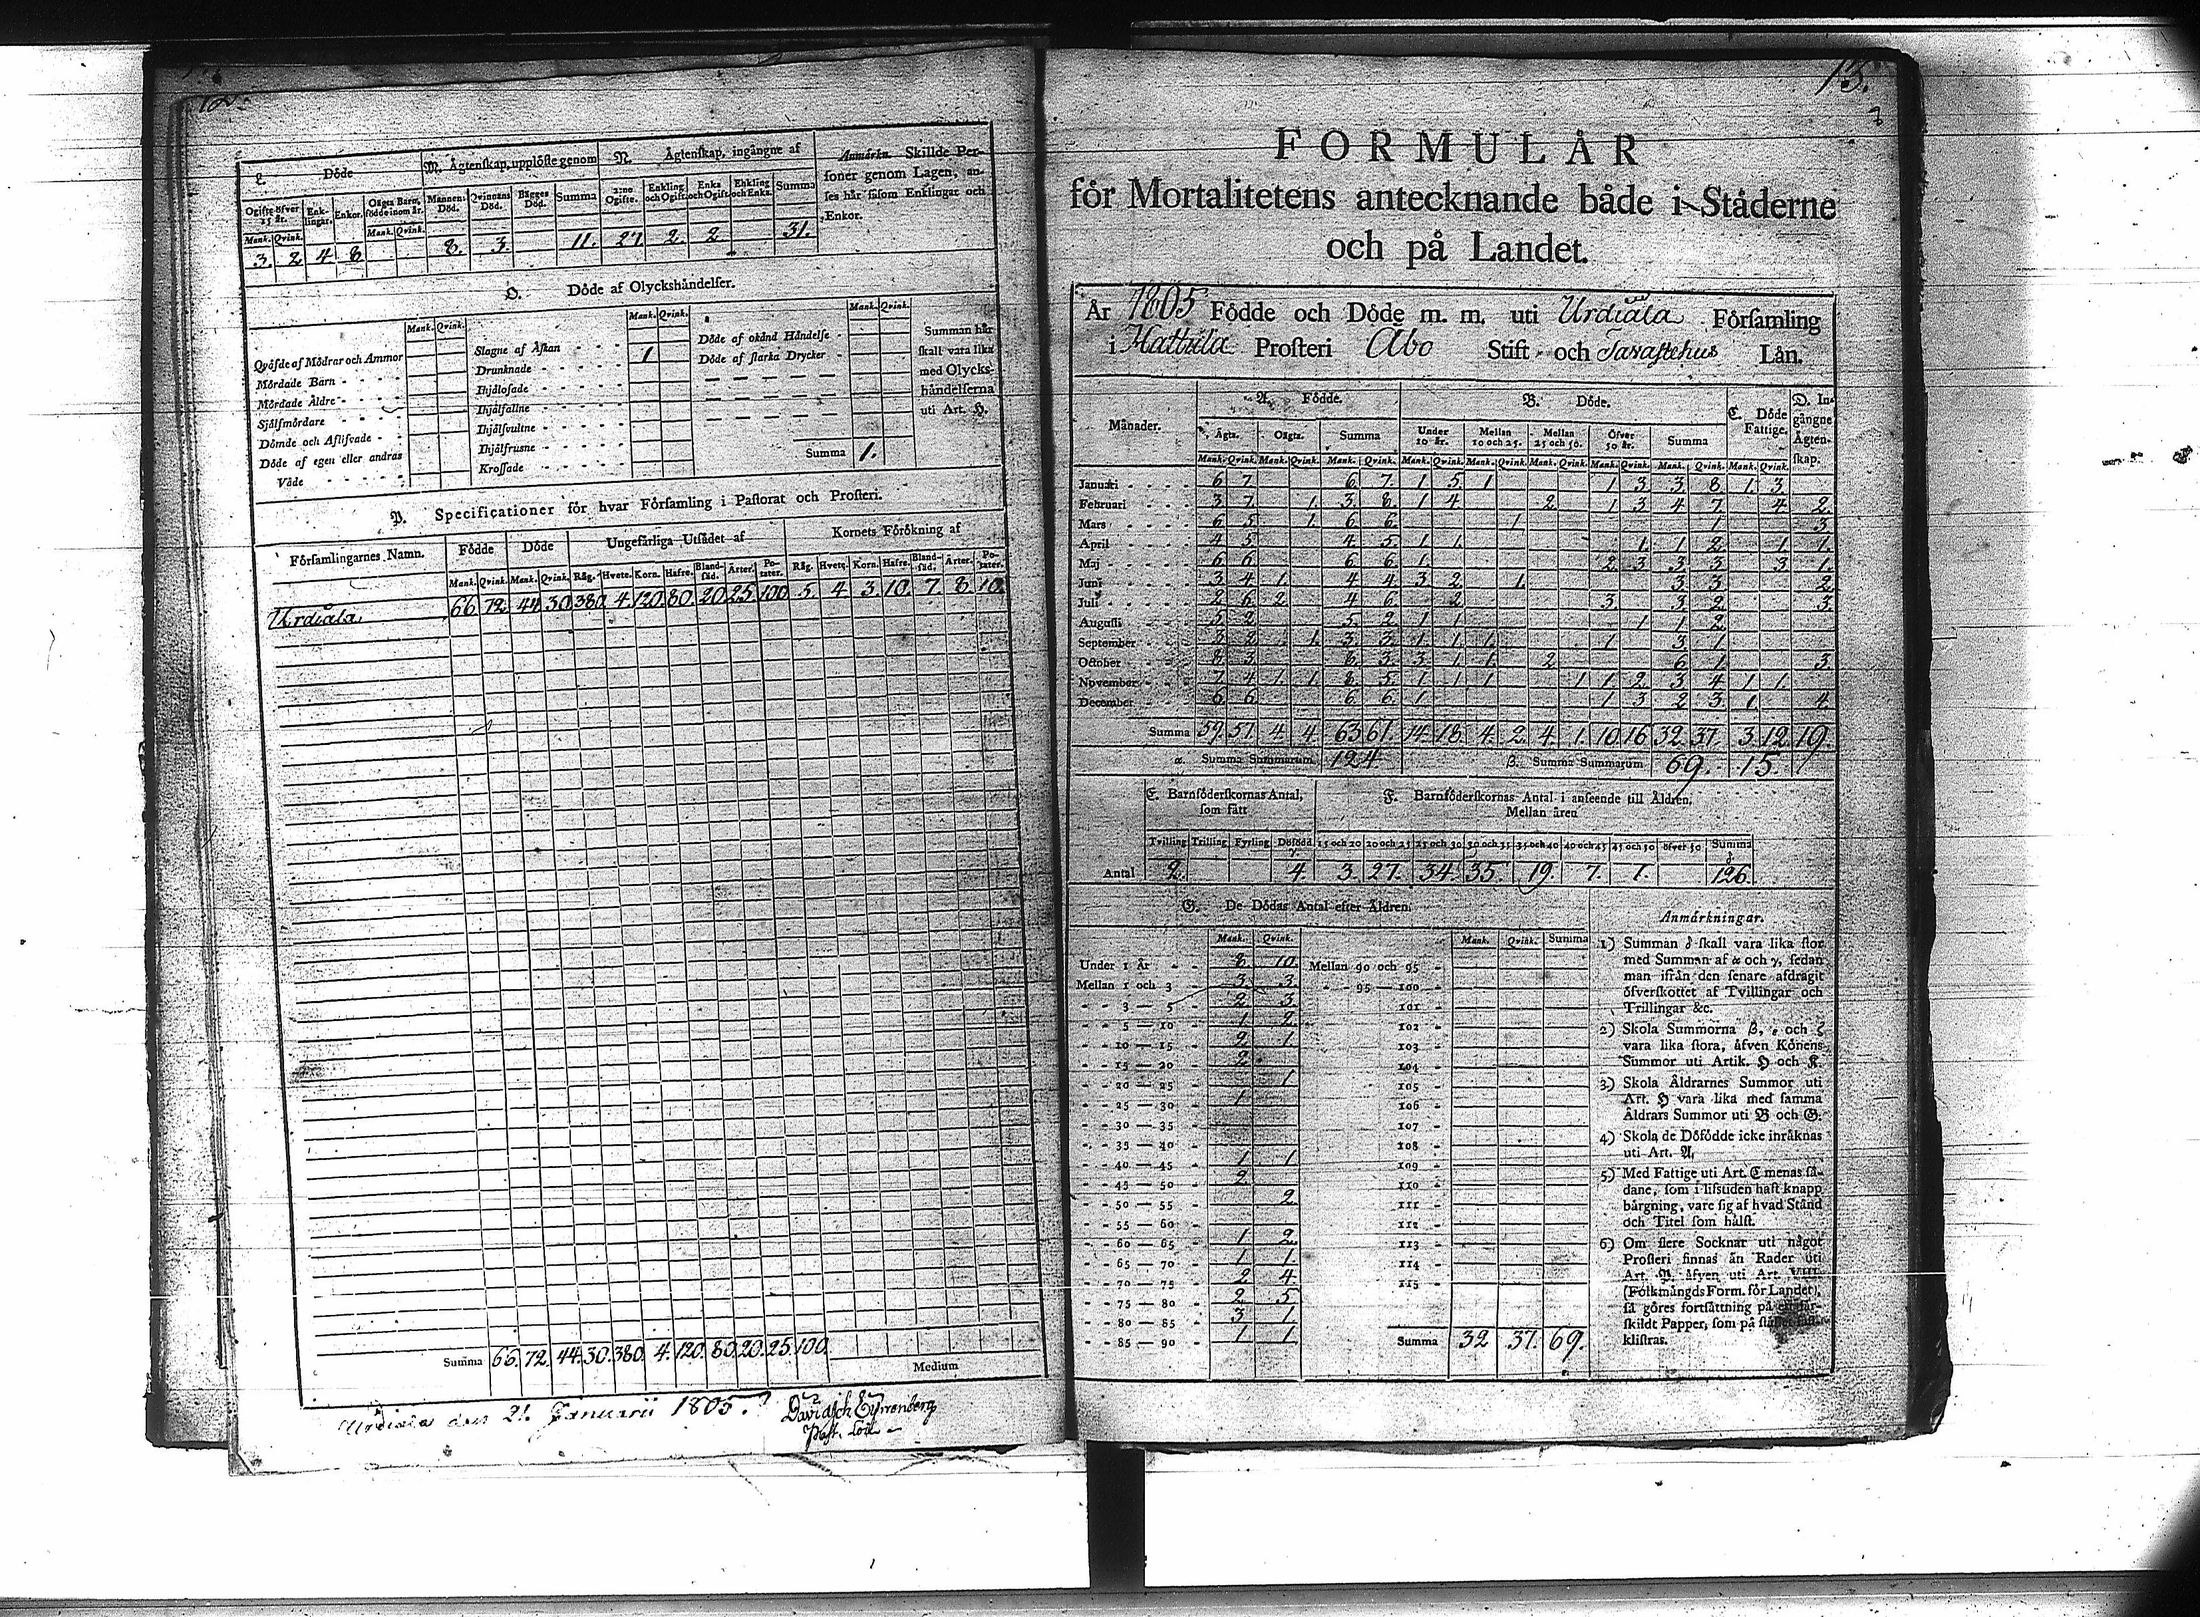 L. Döde
M. Ägtenskap, upplöste genom
N. Ägtenskap, ingångne af
Anmärkn. Skillde Personer
soner genom Lagen, anses
ses här såsom Enklingar och
Enkor.
Ogifte öfver 15 år. Enklingar. Enkor. Oägta Barn, födde inom år. Mannens Död. Qvinnans Död. Bägges Död. Summa 2:ne Ogifte. Enkling och Ogift. Enka och Ogift. Enkling och Enka. Summa
Mank. Qvink. Mank. Qvink.
3. 2. 4 8 8. 3. 11. 27 2. 2. 31.
O. Döde af Olyckshändelser.
Mank. Qvink. Mank. Qvink. Mank. Qvink.
Qväfde af Mödrar och Ammor
Mördade Barn
Mördade Äldre
Sjelfmördare
Dömde och Aflifvade
Döde af egen eller andras
Våde
Slagne af Åskan
Drunknade 1
Ihjälosade
Ihjälfallne
Ihjälsvultne
Ihjälfrusne
Krossade
Döde af okänd Händelse
Döde af starka Drycker
Summa 1.
Summan här
skall vara lika
med Olycks-
händelserna
uti Art. H.
P. Specificationer för hvar Församling i Pastorat och Prosteri.
Församlingarnes Namn. Födde Döde Ungefärliga Utsädet af Kornets Förökning af
Mank. Qvink. Mank. Qvink. Råg. Hvete. Korn. Hafre. Bland-säd. Ärter. Po-tater. Råg. Hvete. Korn. Hafre. Bland-säd. Ärter. Po-tater.
Urdiala. 66 72 44 30 380 4 120 80. 20 25 100 5. 4 3. 10. 7. 8. 10.
Summa 66. 72. 44. 30. 380. 4. 120. 80. 20. 25. 100.
Medium
Urdiala den 21. Januarii 1805.
Past.
15.
FORMULÄR
för Mortalitetens antecknande både i Städerne
och på Landet.
År 1805 Födde och Döde m. m. uti Urdiala Församling
i Hattula Prosteri Åbo Stift och Tavastehus Län.
Månader. A. Födde. B. Döde. C. Döde Fattige. D. Ingångne Ägtenskap.
Ägta. Oägta. Summa Under 10 år. Mellan 10 och 25. Mellan 25 och 50. Öfver 50 år. Summa
Mank. Qvink. Mank. Qvink. Mank. Qvink. Mank. Qvink. Mank. Qvink. Mank. Qvink. Mank. Qvink. Mank. Qvink. Mank. Qvink.
Januari 6 7 6. 7. 1 5 1 1 3 3 8 1. 3
Februari 3 7 1. 3. 8. 1 4 2. 1 3 4 7. 4 2.
Mars 6 5 1. 6 6. 1. 1 3
April 4 5 4 5. 1 1. 1. 1 2 1. 1.
Maj 6 6 6 6. 1. 2 3 3 3 3 1
Juni 3 4 1. 4 4 3 2 1. 3 3 2
Juli 2 6 2. 4 6. 2 3. 3 2. 3.
Augusti 5 2 5. 2 1 1 1 1 2
September 3 2 1. 3 3 1 1 1. 1 3. 1.
October 8 3 8. 3. 3 1 1. 2 6 1. 3
November 7 4 1 1 8 5. 1 1 1 1 1 2 3 4 1 1.
December 6 6 6 6. 1 1 3 2 3 1. 4
Summa 59. 57. 4 4. 63 61. 14 18. 4. 2. 4. 1. 10. 16 32. 37. 3. 12. 19.
α. Summa Summarum 124 β. Summa Summarum 69. 15.
E. Barnföderskornas Antal, som fått
F. Barnföderskornas Antal i anseende till Åldren.
Mellan åren
Tvilling Trilling Fyrling Dödfödd. γ. 15 och 20 20 och 25 25 och 30 30 och 35 35 och 40 40 och 45 45 och 50 öfver 50 Summa δ
Antal 2. 4. 3. 27. 34. 35. 19. 7. 1. 126.
G. De Dödas Antal efter Åldren.
Mank. Qvink. Mank. Qvink. Summa
Under 1 År 8 10 Mellan 90 och 95
Mellan 1 och 3 3 3 95 — 100
3 — 5 2 3 101
5 — 10 1 2 102
10 — 15 2 1 103
15 — 20 2 104
20 — 25 1 105
25 — 30 1 106
30 — 35 107
35 — 40 108
40 — 45 1 1 109
45 — 50 2 110
50 — 55 2 111
55 — 60 112
60 — 65 1 2 113
65 — 70 1 1 114
70 — 75 2 4 115
75 — 80 2 5
80 — 85 3 1
85 — 90 1 1 Summa 32 37. 69.
Anmärkningar.
1) Summan δ skall vara lika stor
med Summan af α och γ, sedan
man ifrån den senare afdragit
öfverskottet af Tvillingar och
Trillingar &c.
2) Skola Summorna β, ε och ζ
vara lika stora, äfven Könens
Summor uti Artik. H och K.
3) Skola Åldrarnes Summor uti
Art. H vara lika med samma
Åldrars Summor uti B och G.
4) Skola de Dödfödde icke inräknas
uti Art. A.
5) Med Fattige uti Art. C menas så-
dane, som i lifstiden haft knapp
bärgning, vare sig af hvad Stånd
och Titel som hälst.
6) Om flere Socknar uti något
Prosteri finnas än Rader uti
Art. P. äfven uti Art. VIII
(Folkmängds Form. för Landet),
så göres fortsättning på
skildt Papper, som på
klistras.